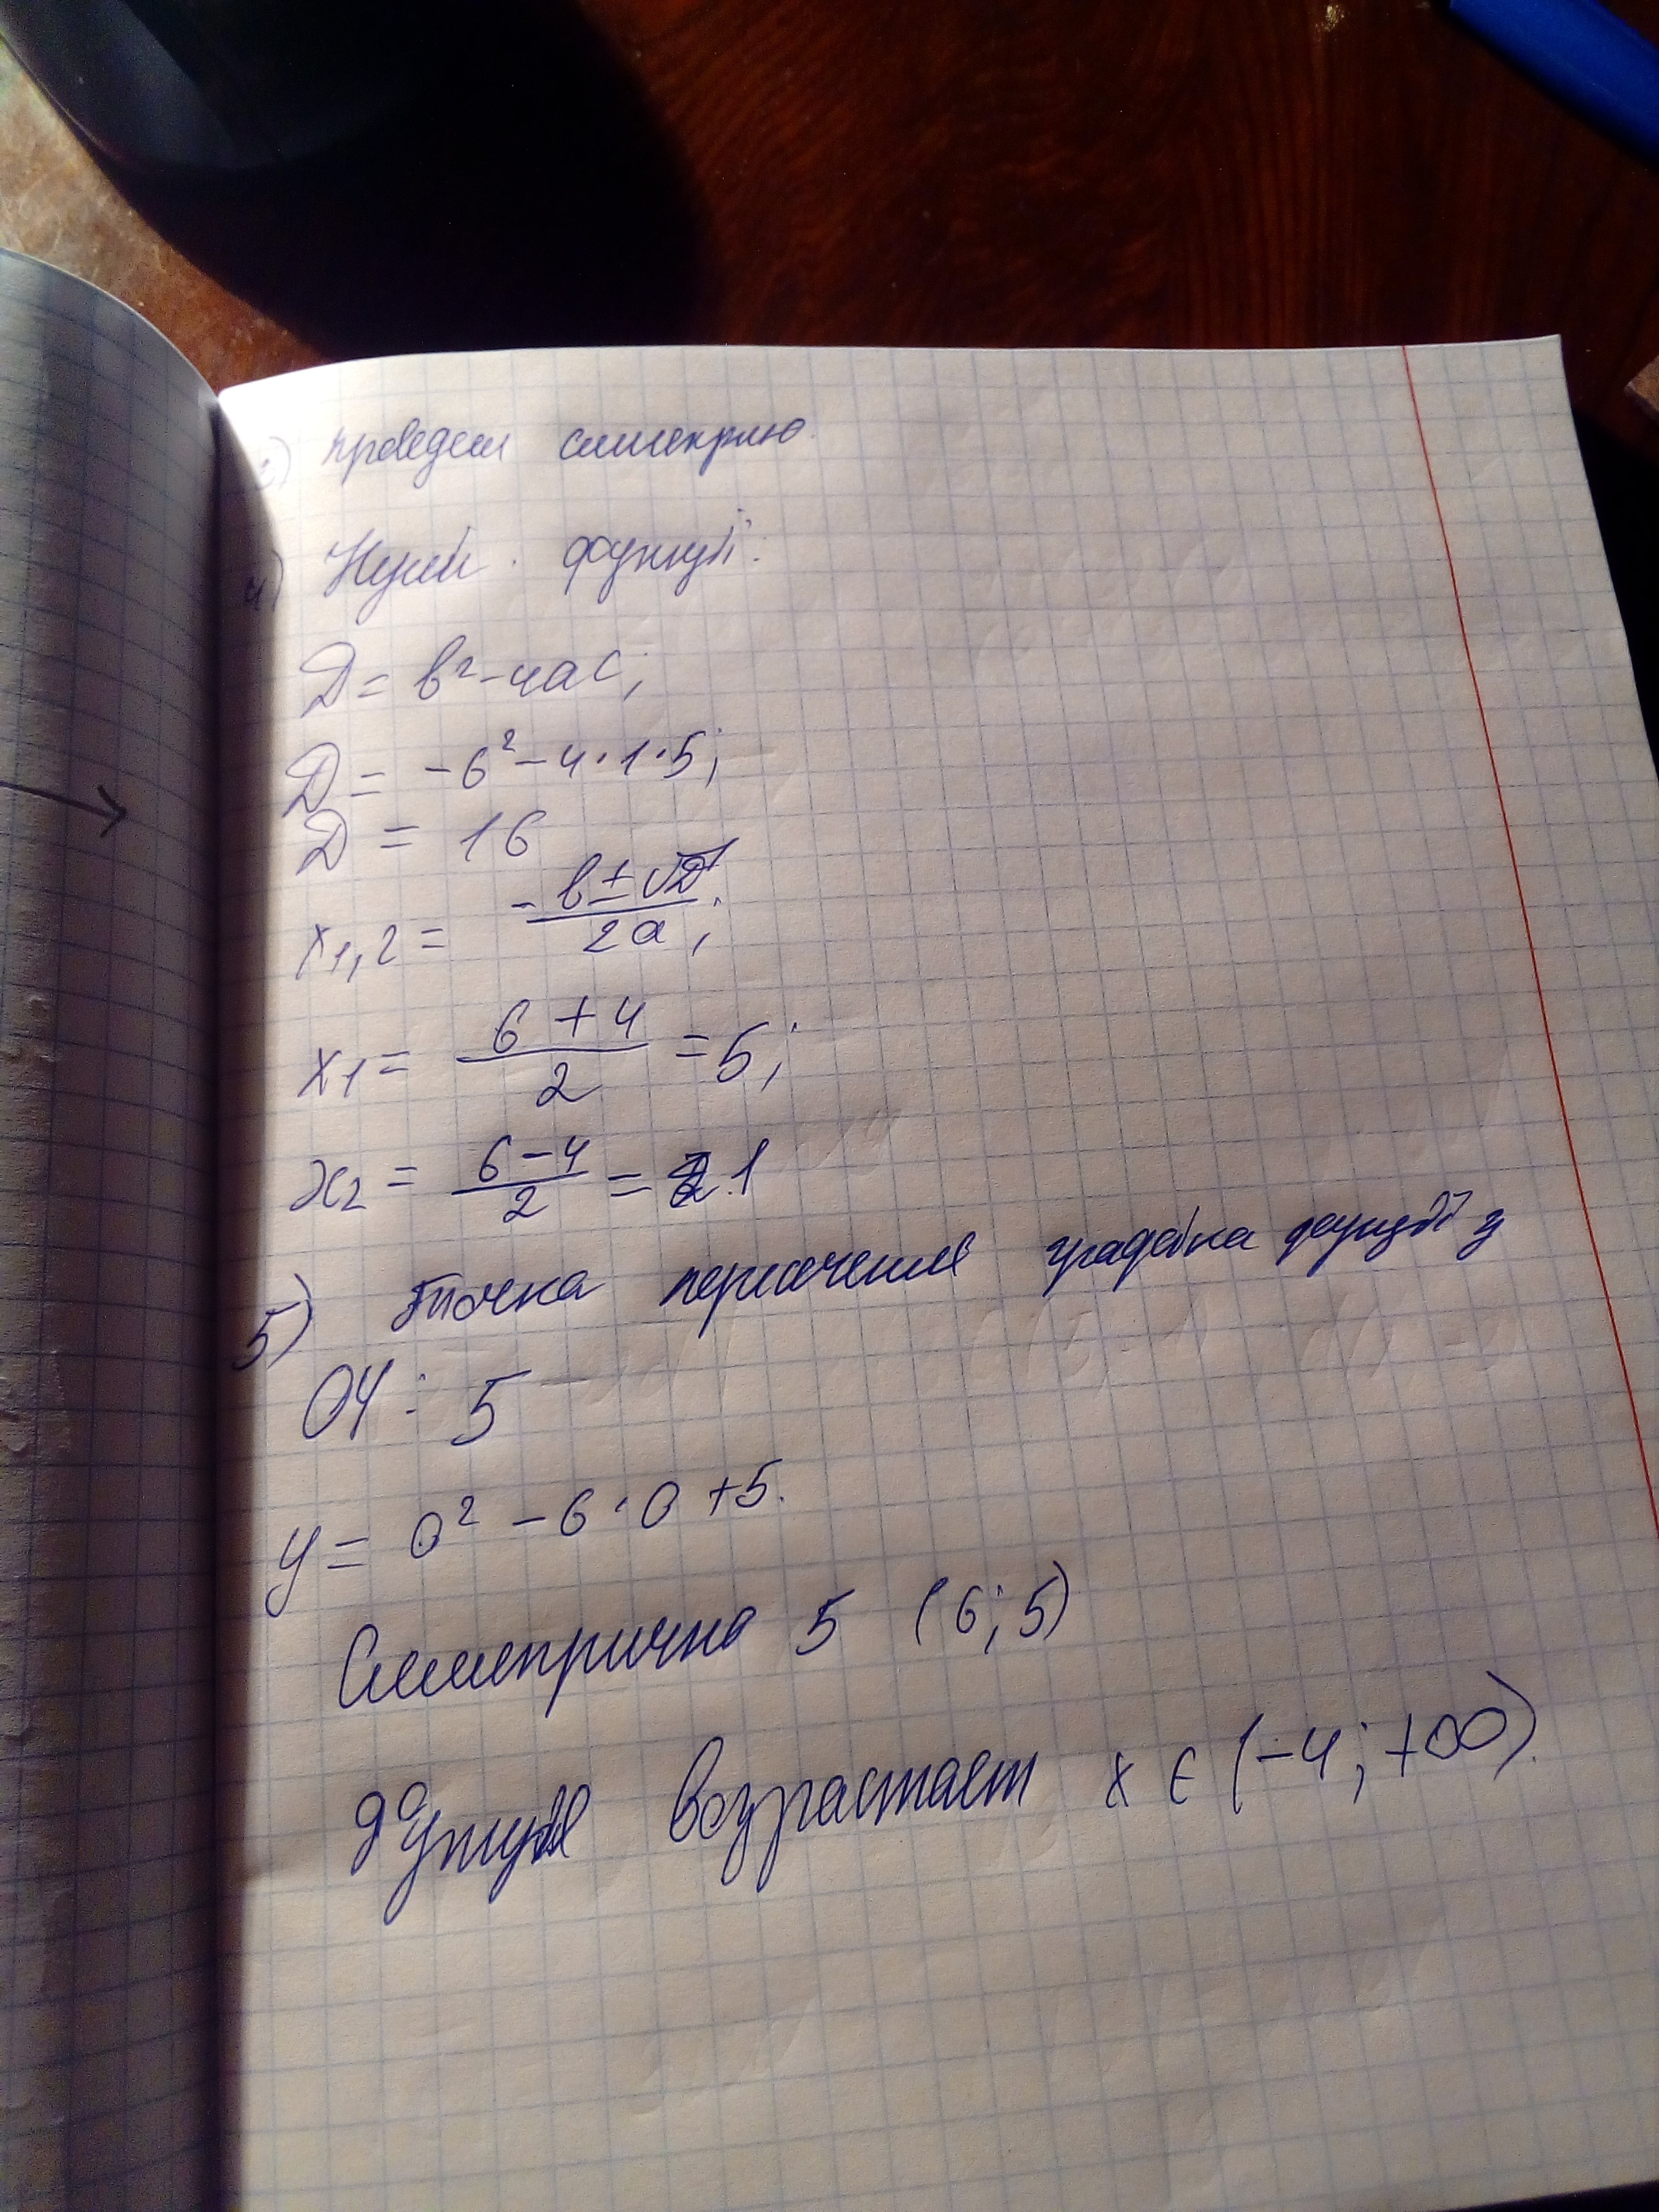 3) проведем симетрию.
4) Нули функций:
Д = в² - 4ас;
Д = -6² - 4·1·5;
Д = 16
x1,2 = (-в ± √Д)/2а;
x1 = (6 + 4)/2 = 5;
x2 = (6 - 4)/2 = 1
5) точка пересечения графика функций з
ОУ: 5
y = 0² - 6·0 + 5.
Симетрична 5 (6; 5)
Функция возрастает x ∈ (-4; +∞).